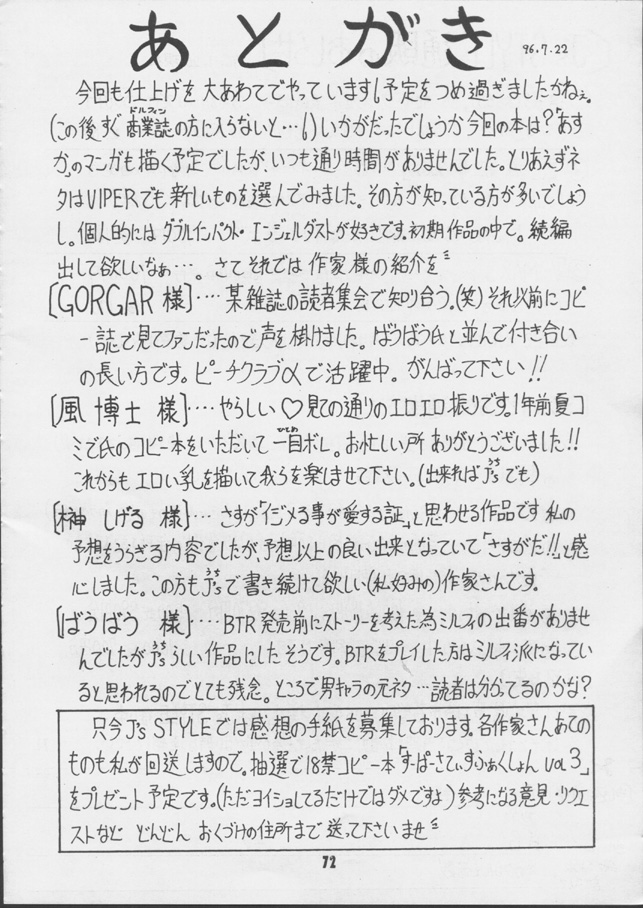 あとがき
96.7.22
今回も仕上げを大あわてでやっています！予定をつめ過ぎましたかねぇ。
(この後すぐ商業誌の方に入らないと…！)いかがだったでしょうか今回の本は？「あす
か」のマンガも描く予定でしたが、いつも通り時間がありませんでした。とりあえずネ
タはVIPERでも新しいものを選んでみました。その方が知っている方が多いでしょう
し。個人的にはダブルインパクト・エンジェルダストが好きです。初期作品の中で。続編
出して欲しいなぁ…。さてそれでは作家様の紹介を
[GORGAR様]‥‥某雑誌の読者集会で知り合う。(笑)それ以前にコピ
ー誌で見てファンだったので声を掛けました。ばうばう氏と並んで付き合い
の長い方です。ピーチクラブαで活躍中。がんばって下さい!!
[風博士様]‥‥やらしい♡見ての通りのエロエロ振りです。1年前夏コ
ミで氏のコピー本をいただいて一目ボレ。お忙しい所ありがとうございました!!
これからもエロい乳を描いて我らを楽しませて下さい。(出来ればJ'sでも)
[榊しげる様]‥‥さすが「イジメる事が愛する証」と思わせる作品です私の
予想をうらぎる内容でしたが、予想以上の良い出来となっていて「さすがだ!!」と感
心しました。この方もJ'sで書き続けて欲しい(私好みの)作家さんです。
[ばうばう様]‥‥BTR発売前にストーリーを考えた為ミルフィの出番がありませ
んでしたがJ'sらしい作品にしたそうです。BTRをプレイした方はミルフィ派になってい
ると思われるのでとても残念。ところで男キャラの元ネタ…読者は分かってるのかな？
只今J's STYLEでは感想の手紙を募集しております。各作家さんあての
ものも私が回送しますので。抽選で18禁コピー本「すーぱーさてぃすふぁくしょん vol 3」
をプレゼント予定です。(ただヨイショしてるだけではダメですよ)参考になる意見・リクエ
ストなど どんどん おくづけの住所まで送って下さいませ
72